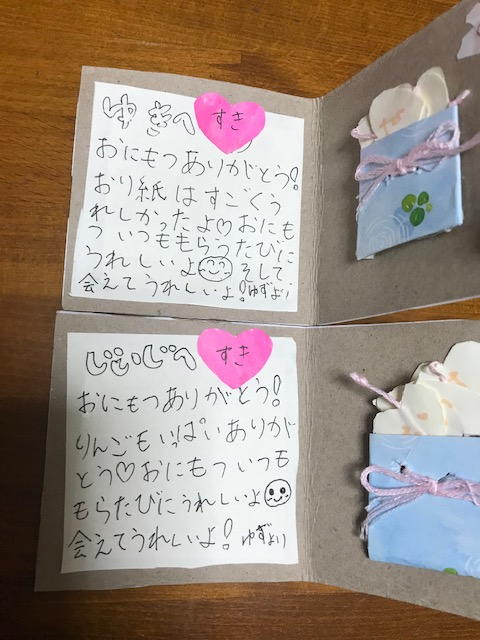 ゆきへ
すき
おにもつありがとう!
おり紙はすごくう
れしかったよ♡おにも
ついつももらうたびに
うれしいよ そして
会えてうれしいよ!ゆずより
じいじへ
すき
おにもつありがとう!
りんごもいっぱいありが
とう♡おにもついつも
もらたびにうれしいよ
会えてうれしいよ!ゆずより